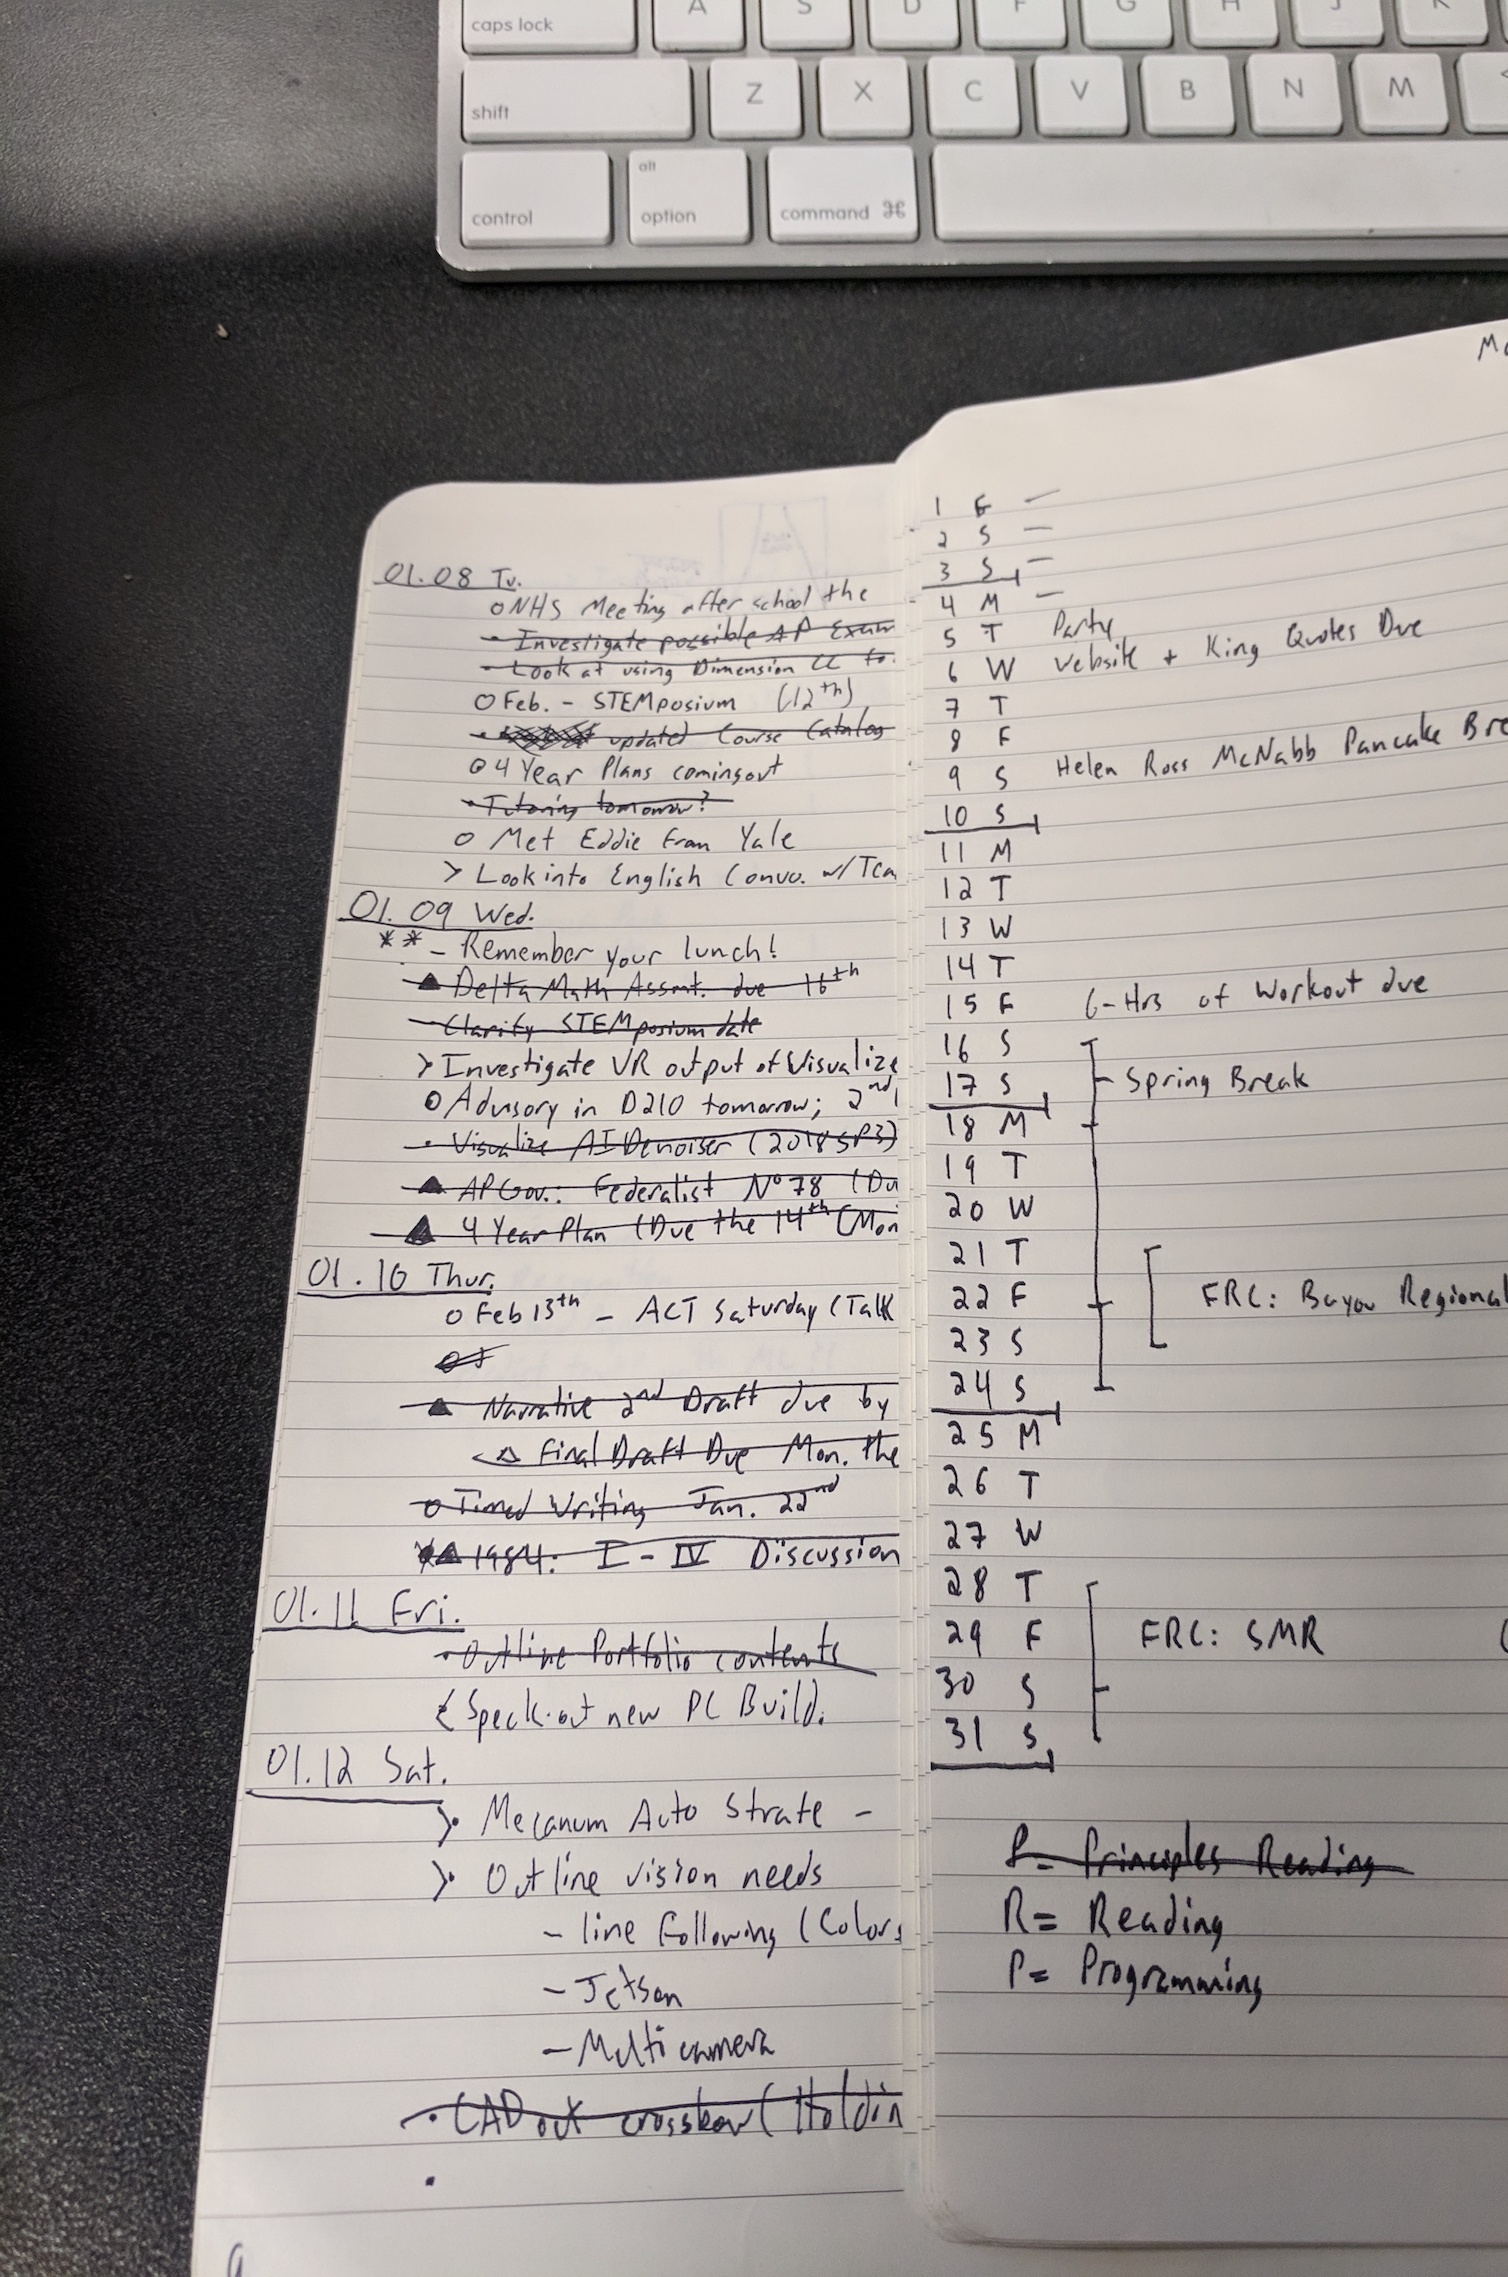 caps lock A S D F G H J K
shift Z X C V B N M <
control alt option command ⌘
01.08 Tu.
O NHS Meeting after school the
• Investigate possible AP Exam
- Look at using Dimension CC to
O Feb. - STEMposium (12th)
• updated Course Catalog
O 4 Year Plans coming out
• Tutoring tomorrow?
O Met Eddie from Yale
> Look into English Convo. w/
01.09 Wed.
** - Remember your lunch!
▲ Delta Math Assmt. due 16th
- Clarify STEMposium date
> Investigate VR output of Visualize
O Advisory in D210 tomorrow; 2nd
• Visualize AI Denoiser (2018 SP3)
▲ AP Gov.: Federalist Nº 78 (Du
▲ 4 Year Plan (Due the 14th (Mon
01.10 Thur.
O Feb 13th - ACT Saturday (Talk
▲ Narrative 2nd Draft due by
△ Final Draft Due Mon. the
O Timed Writing Jan. 22nd
▲ 1984: I - IV Discussion
01.11 Fri.
• Outline Portfolio contents
< Speck-out new PC Build.
01.12 Sat.
> Mecanum Auto Strate -
> Outline vision needs
- line following (Colors
- Jetson
- Multi camera
• CAD out crossbow (Holdin
•
1 F -
2 S -
3 S -
4 M -
5 T Party
6 W Website + King Quotes Due
7 T
8 F
9 S Helen Ross McNabb Pancake Bre
10 S
11 M
12 T
13 W
14 T
15 F 6-Hrs of Workout due
16 S
17 S Spring Break
18 M
19 T
20 W
21 T
22 F FRC: Bayou Regional
23 S
24 S
25 M
26 T
27 W
28 T
29 F FRC: SMR
30 S
31 S
P- Principles Reading
R= Reading
P= Programming